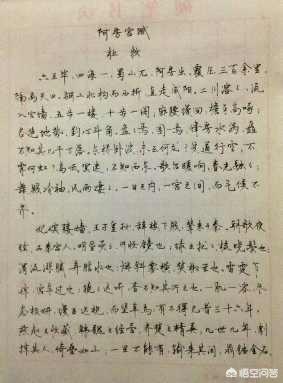 阿房宫赋
杜牧
六王毕，四海一，蜀山兀，阿房出，覆压三百余里，
隔离天日。骊山北构而西折，直走咸阳。二川溶溶，流
入宫墙。五步一楼，十步一阁；廊腰缦回，檐牙高啄；
各抱地势，钩心斗角。盘盘焉，囷囷焉，蜂房水涡，矗
不知其几千万落。长桥卧波，未云何龙？复道行空，不
霁何虹？高低冥迷，不知西东。歌台暖响，春光融融；
舞殿冷袖，风雨凄凄。一日之内，一宫之间，而气候不
齐。
妃嫔媵嫱，王子皇孙，辞楼下殿，辇来于秦，朝歌夜
弦，为秦宫人。明星荧荧，开妆镜也；绿云扰扰，梳晓鬟也；
渭流涨腻，弃脂水也；烟斜雾横，焚椒兰也。雷霆乍
惊，宫车过也；辘辘远听，杳不知其所之也。一肌一容，尽
态极妍，缦立远视，而望幸焉；有不得见者三十六年。
燕赵之收藏，韩魏之经营，齐楚之精英，几世几年，剽
掠其人，倚叠如山；一旦不能有，输来其间，鼎铛金石
悟空问答